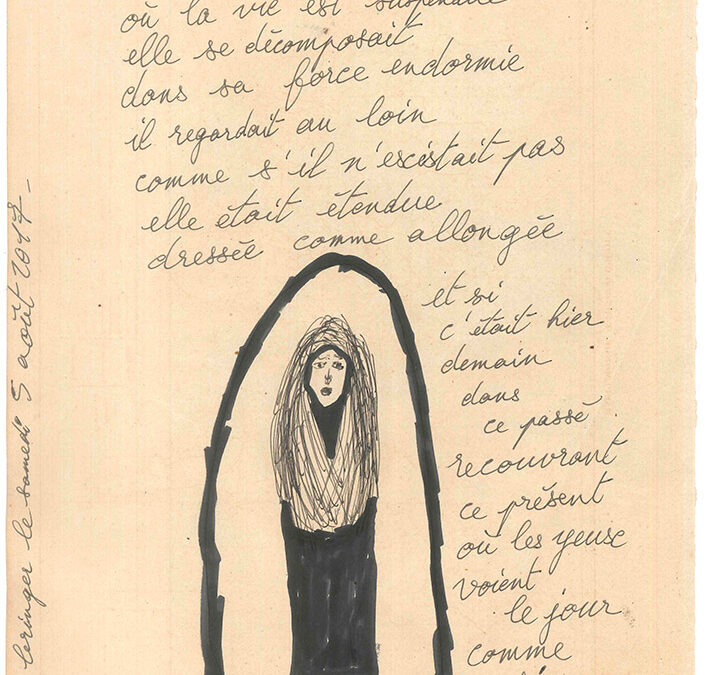 où la vie est suspendue
elle se décomposait
dans sa force endormie
il regardait au loin
comme s'il n'escistait pas
elle était étendue
dressée comme allongée
et si
c'était hier
demain
dans
ce passé
recouvrant
ce présent
où les yeuse
voient
le jour
comme
leringer le samedi 5 août 2017 -